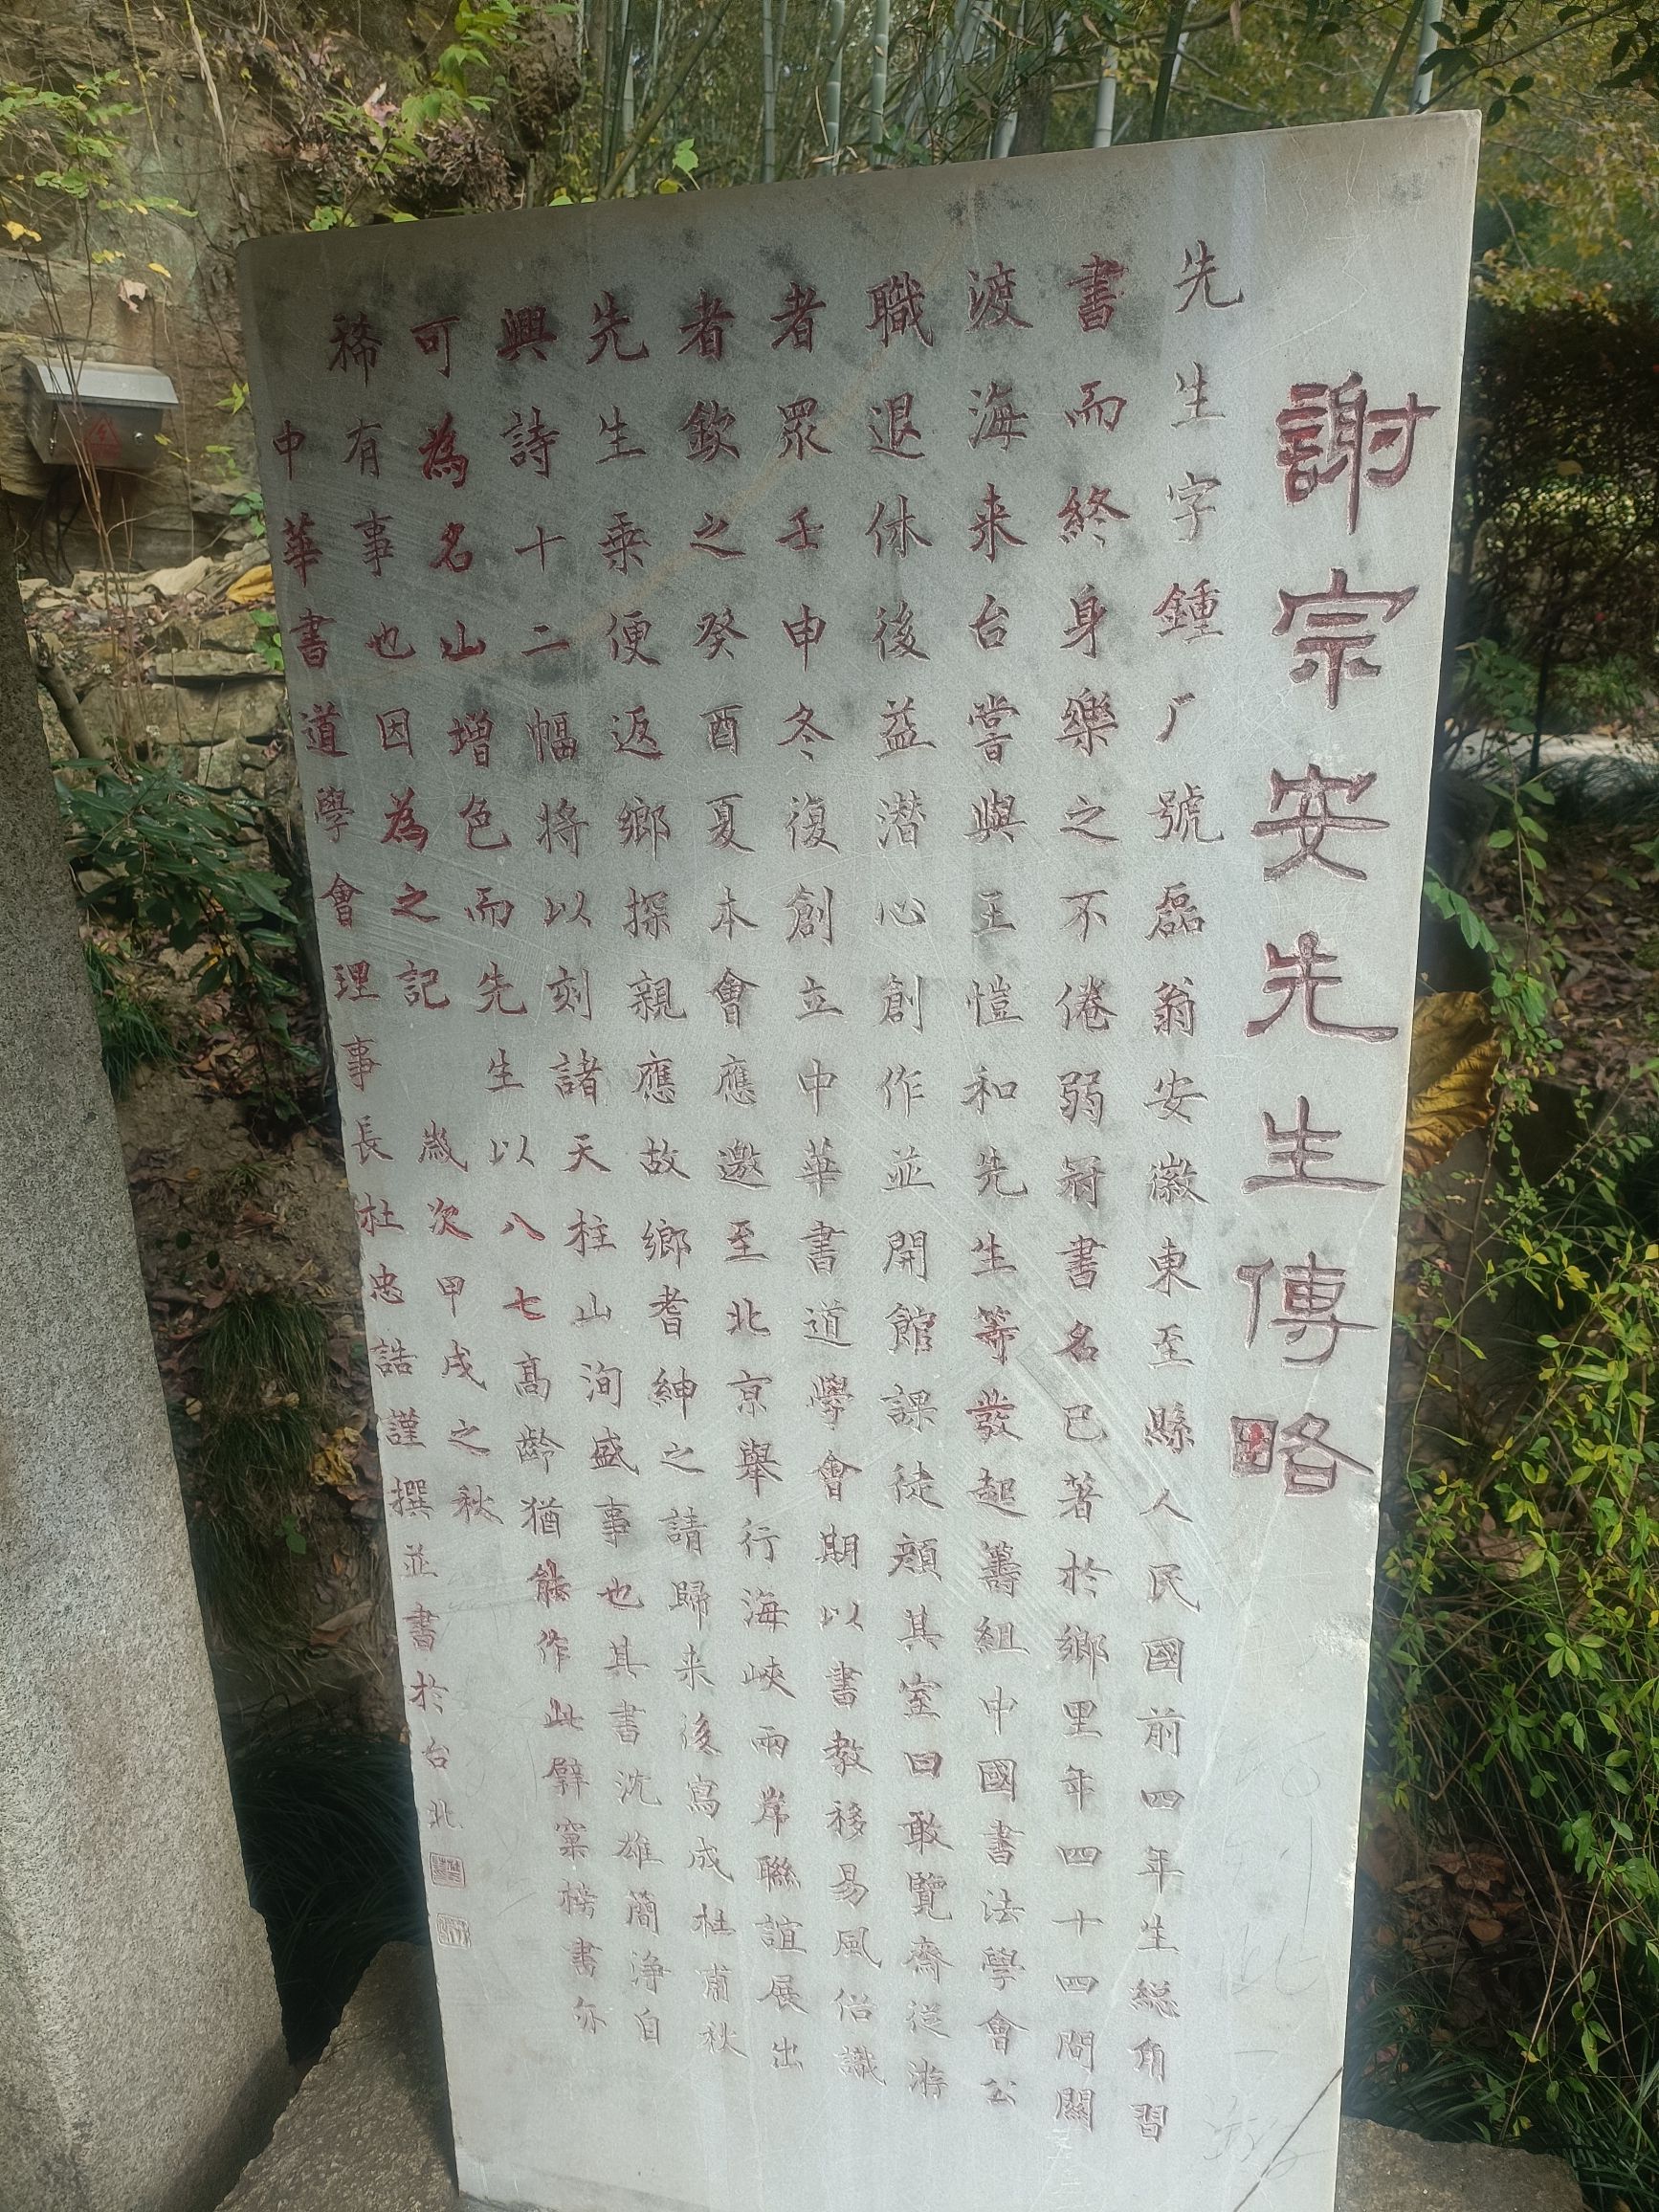 謝宗安先生傳略
先生字鍾厂號磊翁安徽東至縣人民國前四年生總角習
書而終身樂之不倦弱冠書名已著於鄉里年四十四間關
渡海来台嘗與王愷和先生等發起籌組中國書法學會公
職退休後益潛心創作並開館課徒顏其室曰敢覽齋從游
者眾壬申冬復創立中華書道學會期以書教移易風俗識
者欽之癸酉夏本會應邀至北京舉行海峽兩岸聯誼展出
先生乘便返鄉探親應故鄉耆紳之請歸来後寫成杜甫秋
興詩十二幅將以刻諸天柱山洵盛事也其書沈雄簡淨自
可為名山增色而先生以八七高齡猶能作此擘窠榜書亦
稀有事也因為之記 歲次甲戌之秋
中華書道學會理事長杜忠誥謹撰並書於台北